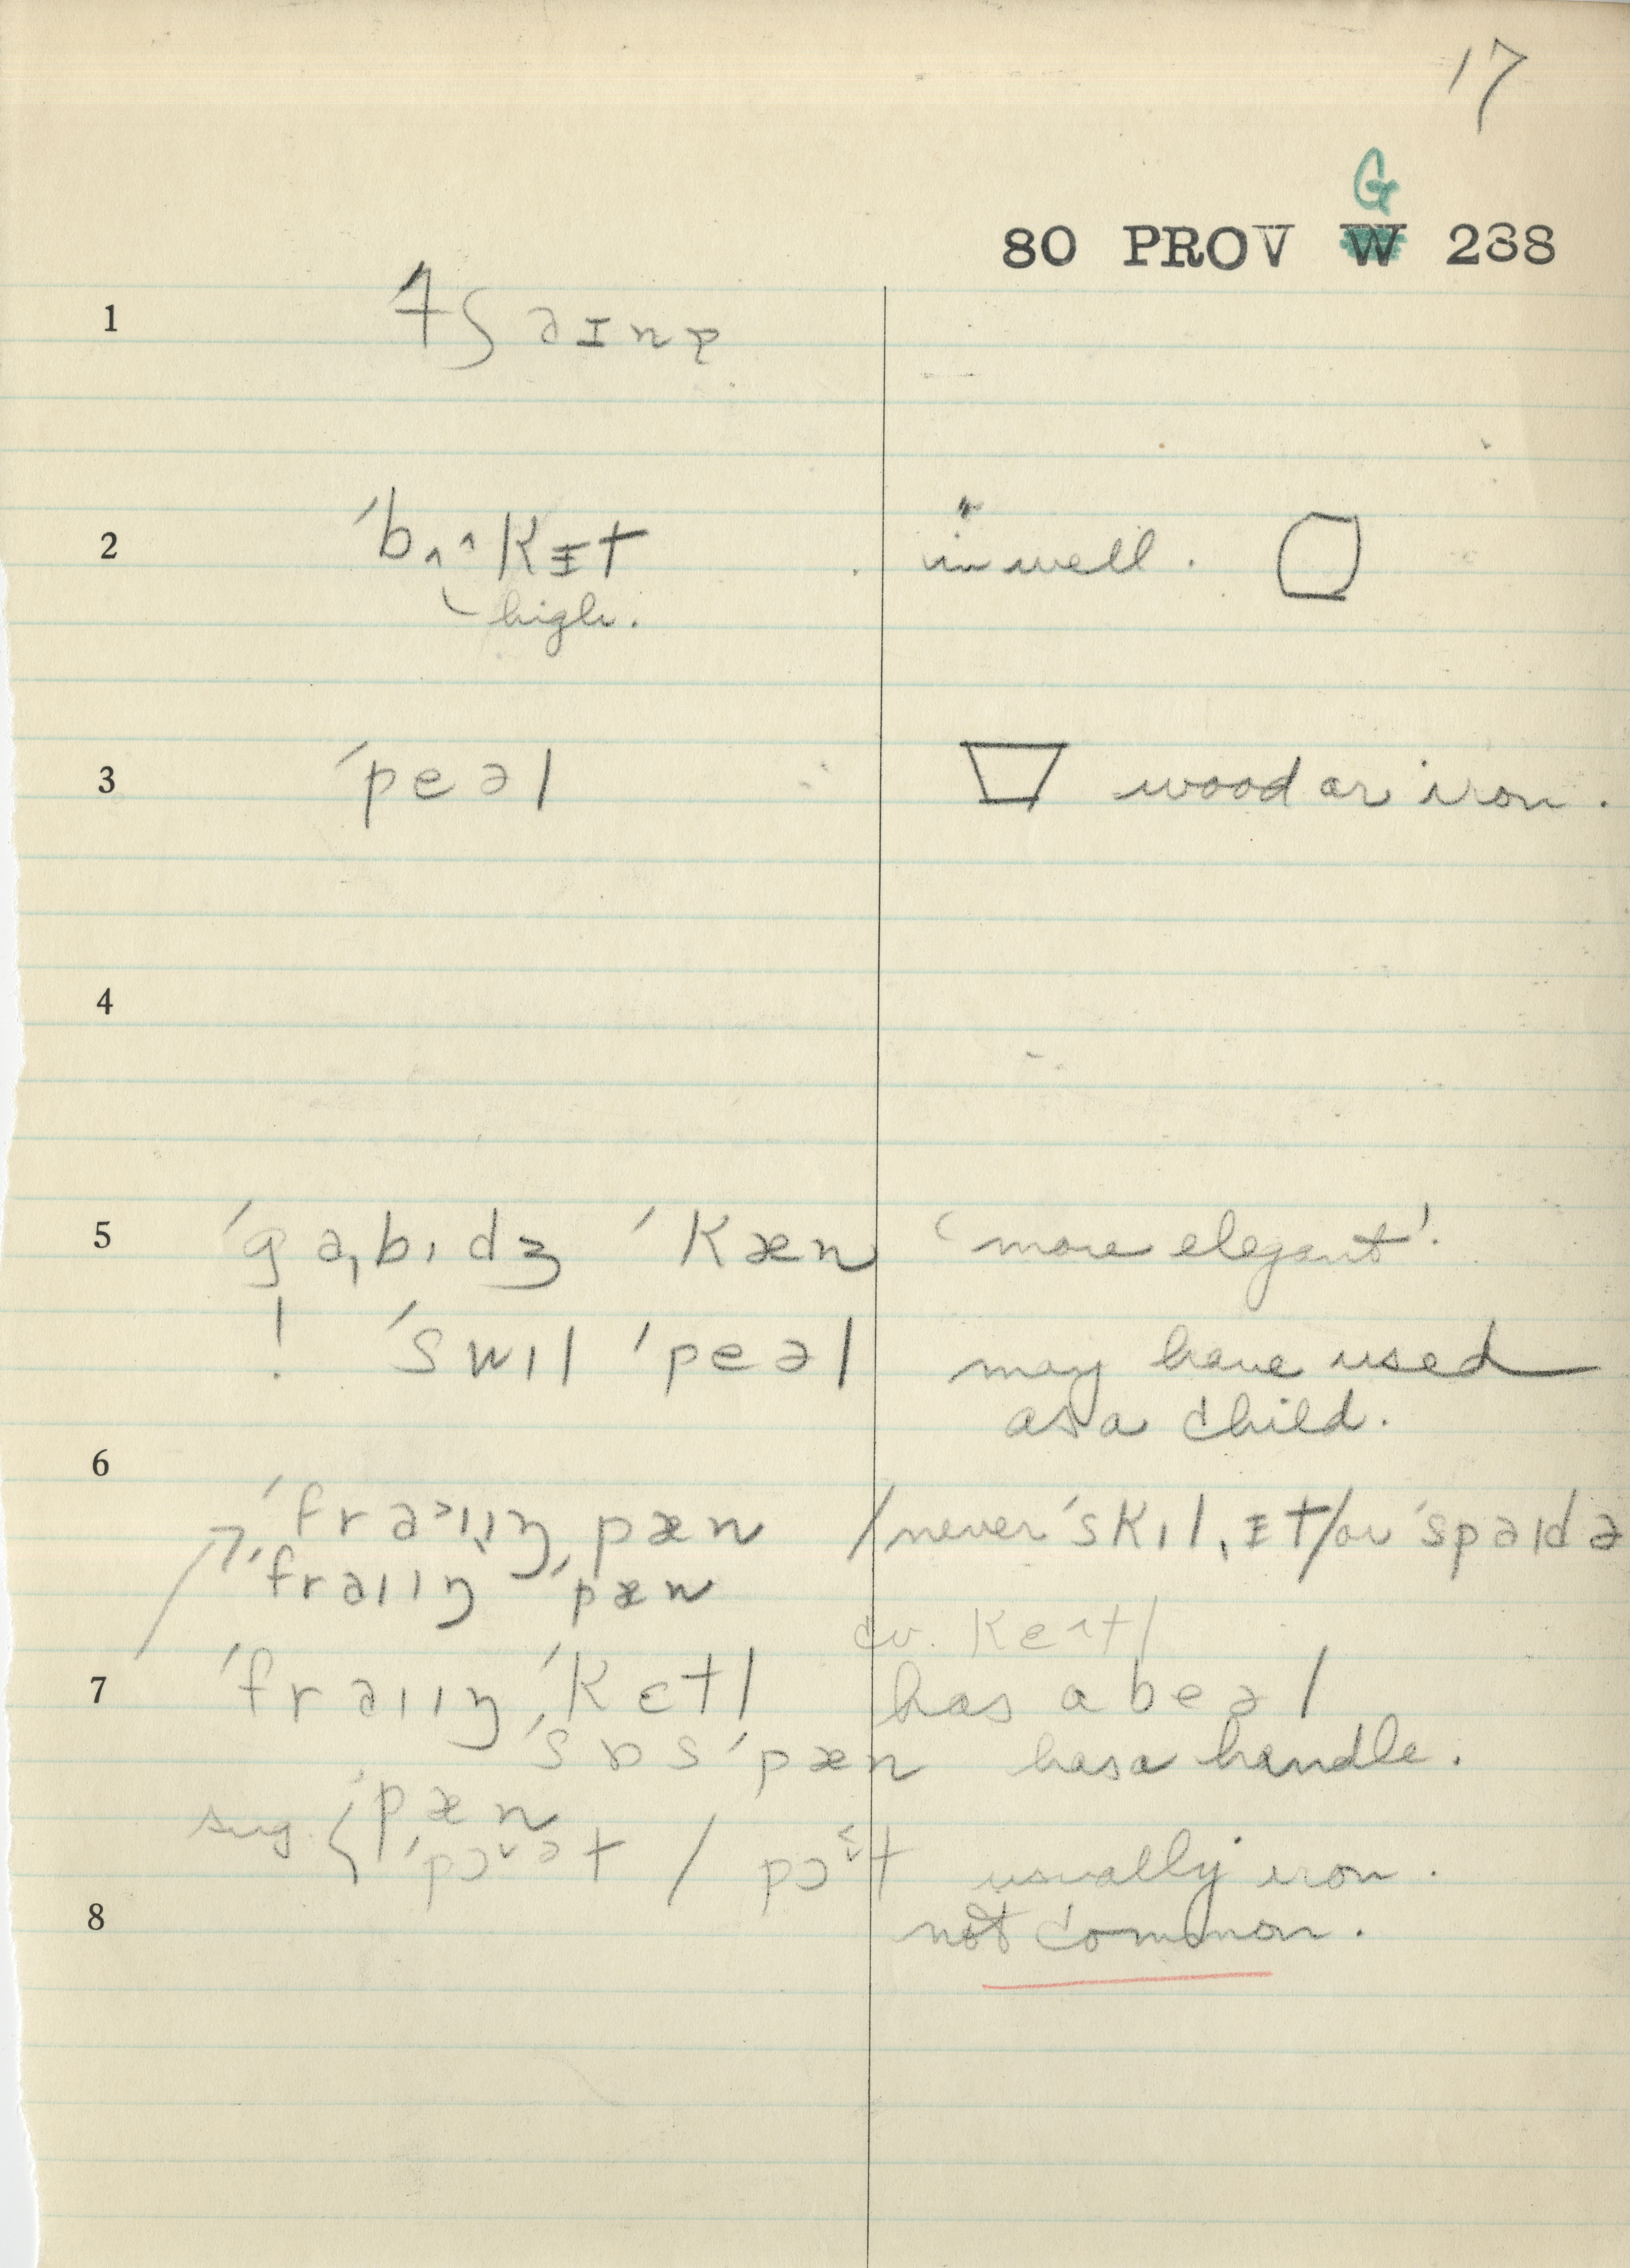 17
G
80 PROV W 288
1 tʃaɪnɚ
2 ˈbʌ^kɪt in well.
high.
3 ˈpeəl wood or iron.
4
5 ˈgaˌbɪdʒ ˈkæn 'more elegant'.
! ˈswɪl ˈpeəl may have used
as a child.
6
ˈfraɪɪŋˌpæn / never ˈskɪlˌɪt / or ˈspaɪdə
ˈfraɪɪŋ ˈpæn
cv.
7 ˈfraɪɪŋ ˈkɛtl has a beəl
ˈsɒsˈpæn has a handle.
sug. { ˈpæn
usually iron.
8 not common.